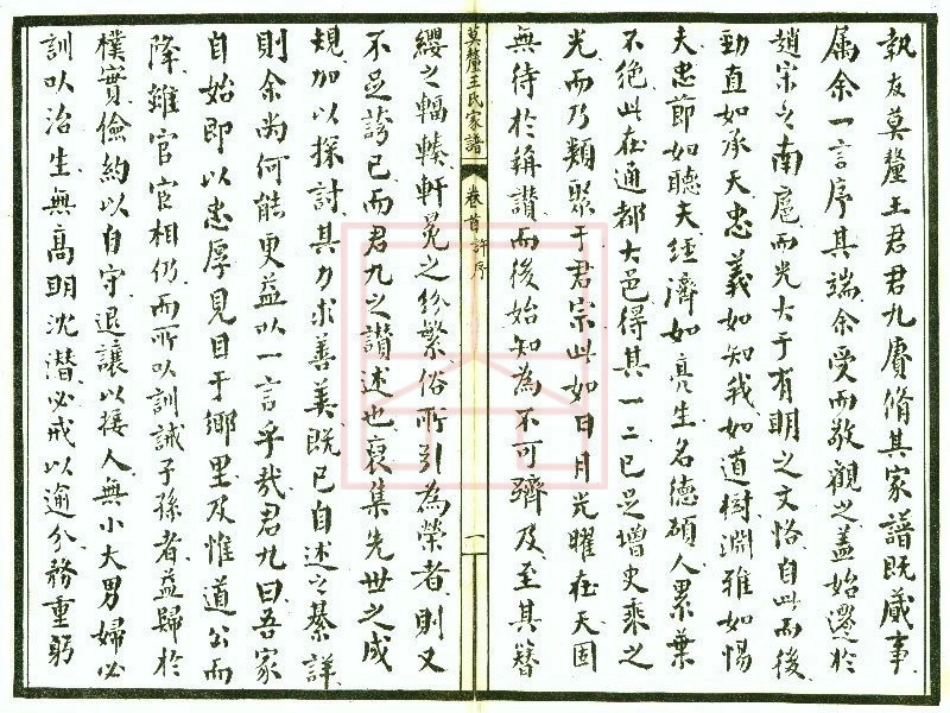 執友莫釐王君君九賡脩其家譜既蕆事
属余一言序其端余受而敬觀之盖始遷於
趙宋之南扈而光大于有明之文恪自此而後
勁直如承天忠義如知我如道樹淵雅如惕
夫忠節如聽夫經濟如亮生名德碩人累葉
不絶此在通都大邑得其一二已足增史乘之
光而乃類聚于君宗此如日月光曜在天固
無待於稱讃而後始知為不可躋及至其簪
莫釐王氏家譜
卷首許序
一
纓之輻輳軒冕之紛繁俗所引為榮者則又
不足誇已而君九之讃述也裒集先世之成
規加以探討其力求善美既已自述之綦詳
則余尚何能更益以一言乎哉君九曰吾家
自始即以忠厚見目于鄉里及惟道公而
降雖官宦相仍而所以訓誡子孫者益歸於
樸實儉約以自守退讓以接人無小大男婦必
訓以治生無高明沈潛必戒以逾分務重躬